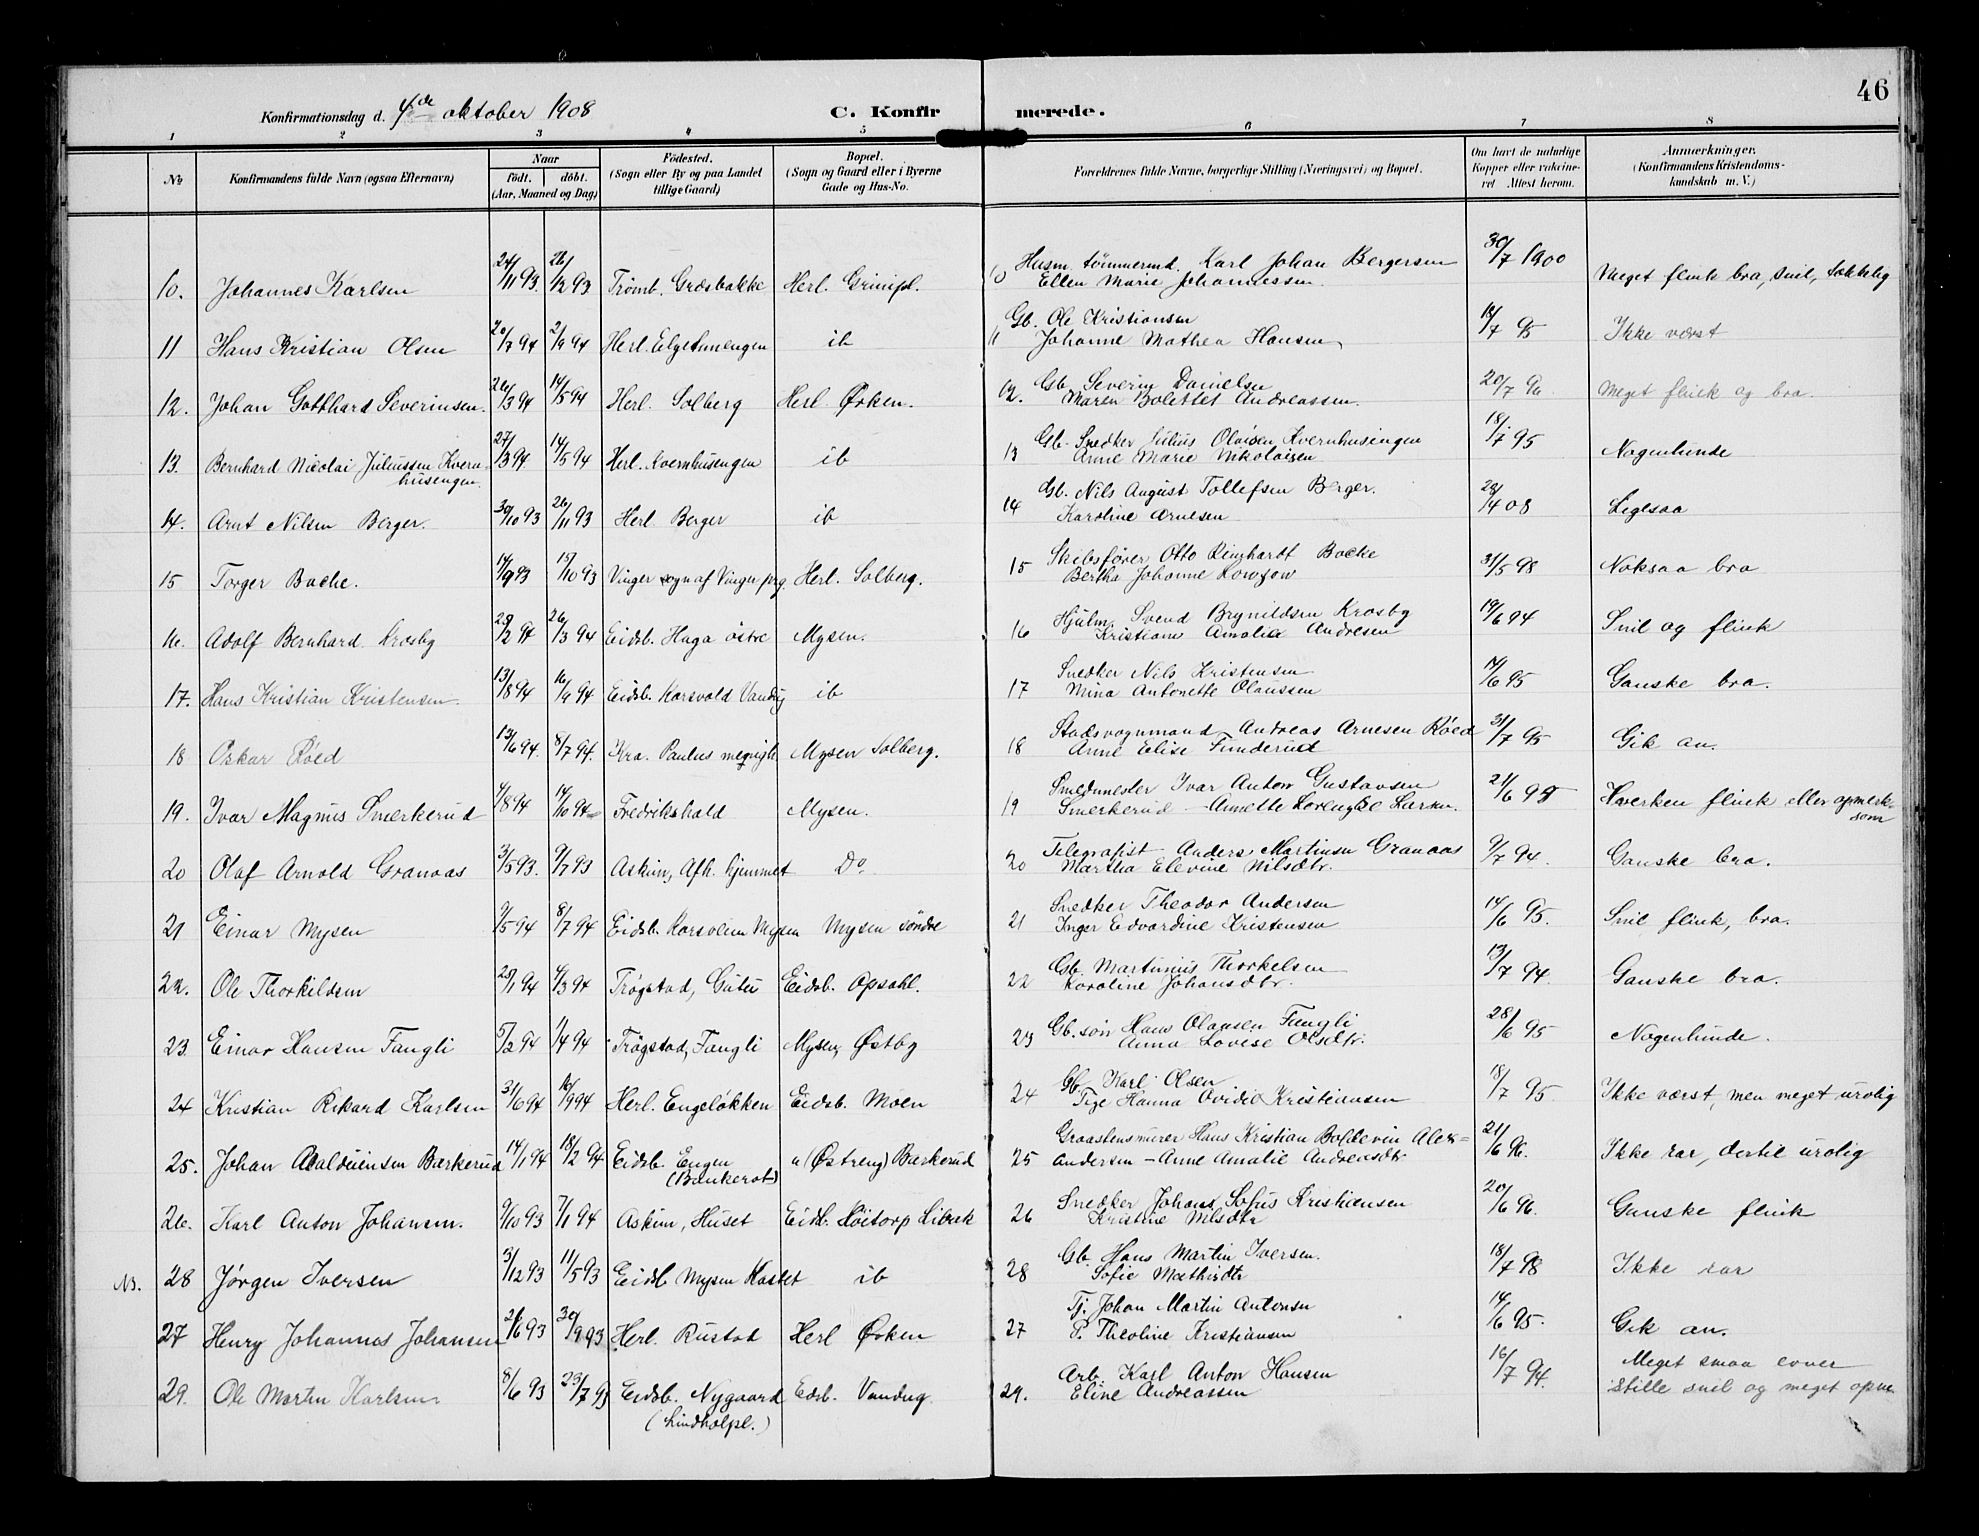 46
Konfirmationsdag d. 4de oktober 1908
C. Konfirmerede.
1 2 3 4 5 6 7 8
No
Konfirmandens fulde Navn (ogsaa Efternavn)
Naar
født. døbt.
(Aar, Maaned og Dag)
Födested.
(Sogn eller By og paa Landet
tillige Gaard)
Bopæl.
(Sogn og Gaard eller i Byerne
Gade og Hus-No.
Forældrenes fulde Navne, borgerlige Stilling (Næringsvei) og Bopæl.
Om havt de naturlige
Kopper eller vaksine-
ret Attest herom.
Anmærkninger.
(Konfirmandens Kristendoms-
kundskab m. V.)
10. Johannes Karlsen 24/11 93. 26/12 93 Trømb. Græsbakke Herl. Grimspl. 10 Husm. tømmermd. Karl Johan Bergersen 30/7 1900 Meget flink bra, snil,
Ellen Marie Johannessen.
11 Hans Kristian Olsen 20/7 94 2/9 94 Herl. Elgetunengen ib 11 Gb. Ole Kristiansen 18/7 95 Ikke værst
Johanne Mathea Hansen
12. Johan Gotthard Severinsen. 26/3 94 14/5 94 Herl. Solberg Herl. Ørken. 12. Gb. Severin Danielsen 20/7 96 Meget flink og bra.
Maren Bolettet Andreassen.
13. Bernhard Nicolai Juliussen Kvern- 27/3 94 14/5 94 Herl. Kvernhusengen ib 13 Gb. Snedker Julius Olaisen Kvernhusengen 18/7 95 Nogenlunde
husengen.
Anne Marie Nikolaisen
14. Arnt Nilsen Berger. 30/10 93 26/11 93 Herl Berger ib 14 Gb. Nils August Tollefsen Berger. 28/4 08 Ligesaa
Karoline Arnesen
15 Torger Bache. 14/9 93 15/10 93 Vinger sogn af Vinger prg. Herl. Solberg. 15 Skibsfører Otto Reinhardt Backe 31/5 98 Noksaa bra
Bertha Johanne
16. Adolf Bernhard Krosby 28/2 94 26/3 94 Eidsb. Haga östre Mysen. 16 Hjulm. Svend Brynildsen Krosby 19/6 94 Snil og flink
Kristiane Amalie Andresen
17. Hans Kristian Kristensen. 13/8 94 16/9 94 Eidsb. Korsvold Vandug ib 17 Snedker Nils Kristensen 14/6 95 Ganske bra.
Mina Antonette Olaussen
18 Oskar Röed 13/6 94. 8/7 94. Kra. Paulus menigh. Mysen Solberg. 18 Stadsvognmand Andreas Arnesen Röed 31/7 95 Gik an.
Anne Elise Funderud
19. Ivar Magnus Smerkerud 4/8 94 14/10 94 Fredrikshald Mysen. 19 Smedmester Ivar Anton Gustavsen 21/6 99 Hverken flink eller opmerk-
som
Smerkerud - Annette Lorentze Larsen.
20 Olaf Arnold Granaas 3/5 93. 9/7 93 Askim, Afh. hjemmet Do. 20 Telegrafist Anders Martinsen Granaas 9/7 94. Ganske bra.
Martha Elevine Nilsdtr.
21 Einar Mysen 9/5 94 8/7 94 Eidsb. Korsveien Mysen Mysen söndre 21 Snedker Theodor Andersen 14/6 95. Snil flink, bra.
Inger Edvardine Kristensen
22. Ole Thorkildsen 25/1 94 4/3 94 Trøgstad, Gutu Eidsb. Opsahl. 22 Gb. Martinius Thorkelsen 13/7 94. Ganske bra.
Karoline Johansdtr.
23. Einar Hansen Fangli 5/2 94 1/4 94 Trögstad, Fangli Mysen, Østby 23 Gb. søn Hans Olausen Fangli 28/6 95 Nogenlunde.
Anna Lovise Olsdtr.
24 Kristian Rikard Karlsen 31/6 94 16/9 94 Herl. Engeløkken Eidsb. Moen 24 Gb. Karl Olsen 18/7 95. Ikke værst, men meget urolig
Tjge Hanna Ovidia Kristiansen
25. Johan Baldvinsen Barkerud 14/1 94 18/2 94 Eidsb. Engen " (Østreng) Barkerud 25 Graastensmurer Hans Kristian Boldevin Alex- 21/6 96. Ikke rar, dertil urolig
(Bankerot)
andersen - Anne Amalie Andreasdtr
26. Karl Anton Johansen. 9/10 93 7/1 94 Askim, Huset Eidsb. Høitorp Libæk 26 Snedker Johans Sofus Kristiansen 20/6 96. Ganske flink
Kristine Nilsdtr
NB. 28 Jørgen Iversen 3/12 93 11/5 93 Eidsb Mysen Kastet ib 28 Gb. Hans Martin Iversen. 18/7 98 Ikke rar
Sofie Mathisdtr
27 Henry Johannes Johansen 26/6 93 30/9 93 Herl. Rustad Herl Ørken 27 Tj. Johan Martin Antonsen 14/6 95. Gik an.
P. Theoline Kristiansen
29. Ole Martin Karlsen 8/6 93 23/7 93 Eidsb. Nygaard Eidsb. Vandug 29. Arb. Karl Anton Hansen 16/7 94. Meget smaa evner
(Lindholpl.)
Eline Andreassen
stille snil og meget opm